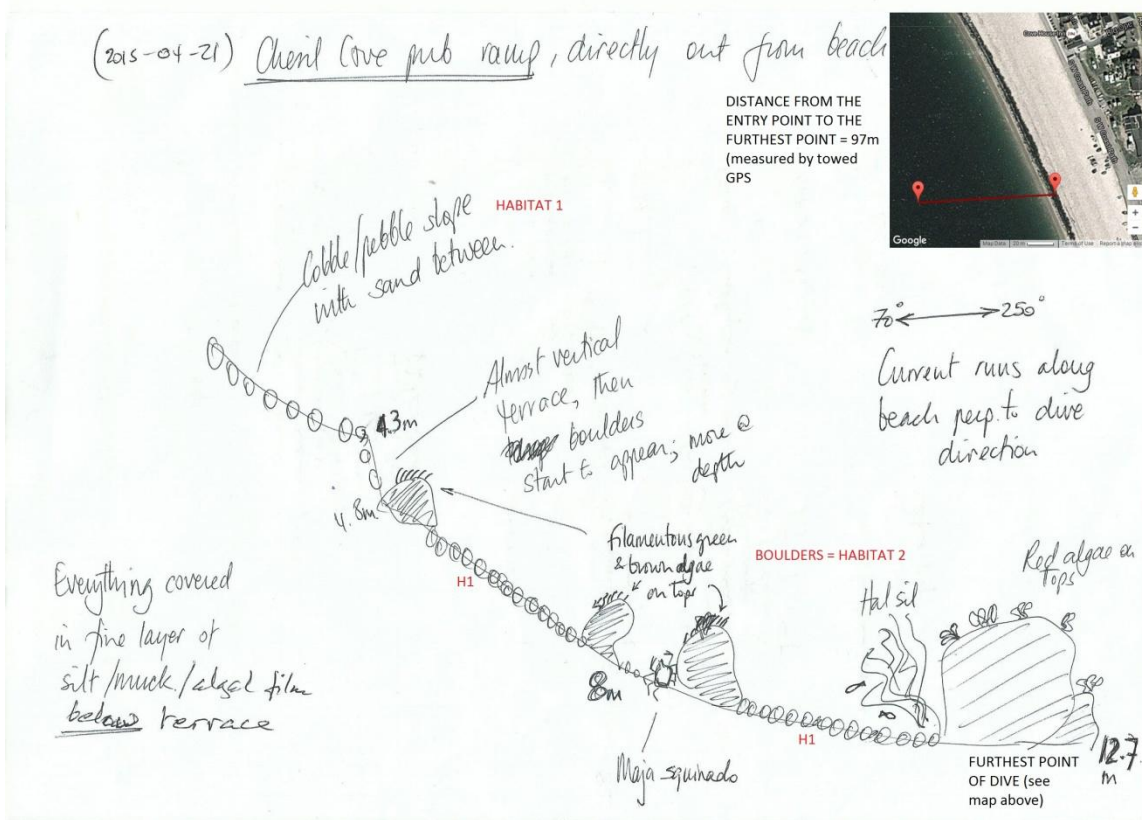 (2015-04-21) Chesil Cove pub ramp, directly out from beach
DISTANCE FROM THE
ENTRY POINT TO THE
FURTHEST POINT = 97m
(measured by towed
GPS
Google
Map Data
20 m
Terms of Use
HABITAT 1
Cobble/pebble slope
with sand between.
70° 250°
Current runs along
beach perp. to dive
direction
Almost vertical
terrace, then
boulders
start to appear; more @
depth
4.3m
4.8m
Filamentous green
& brown algae
on tops
BOULDERS = HABITAT 2
Red algae on
tops
Hal sil
H1
Everything covered
in fine layer of
silt/muck/algal film
below terrace
8m
H1
Maja squinado
FURTHEST POINT
OF DIVE (see
map above)
12.7
m